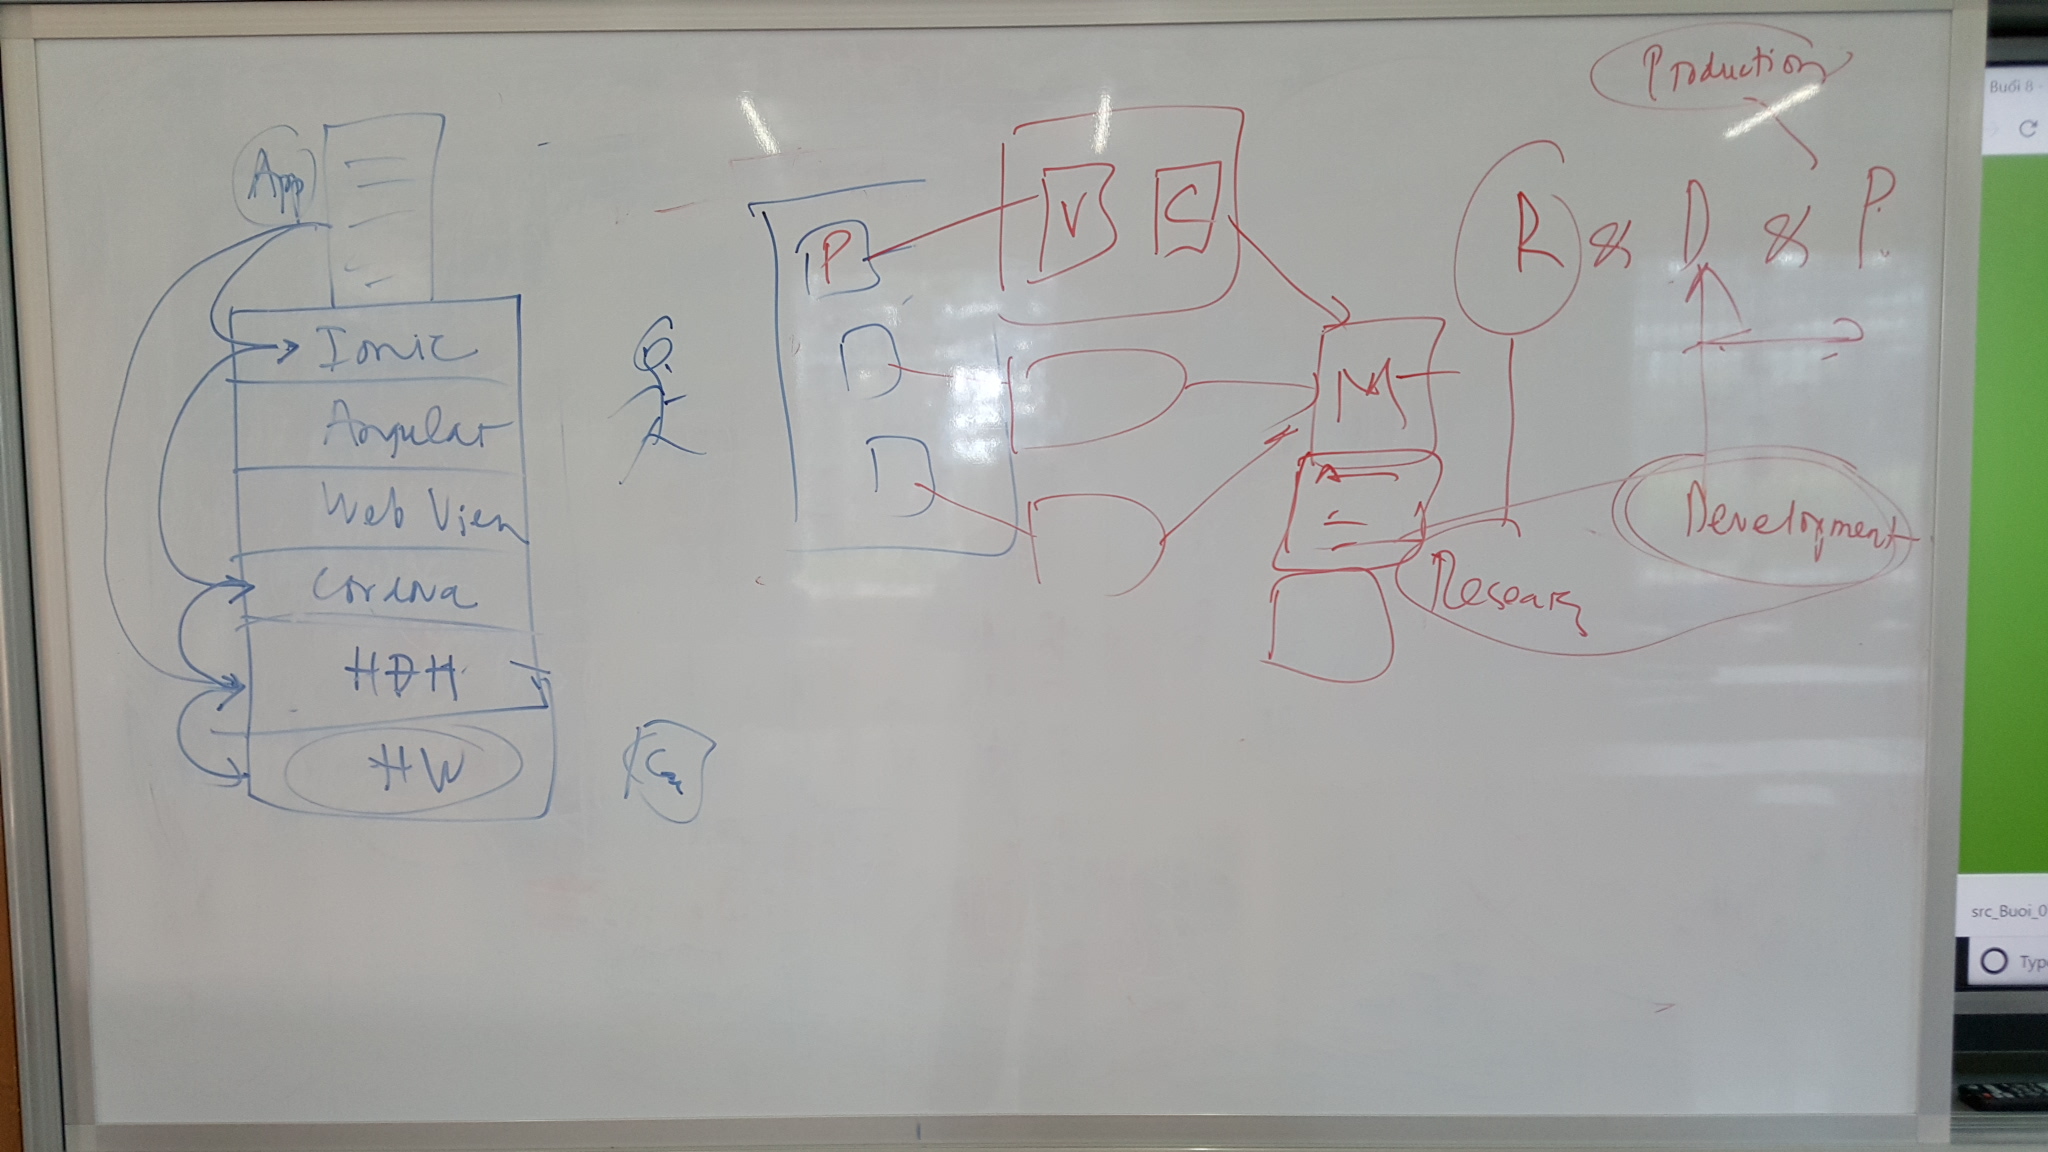 App
Ionic
Angular
Web View
Cordova
HĐH
HW
P
V C
M
Production
R & D & P.
Development
Buổi 8 -
src_Buoi_0
Type